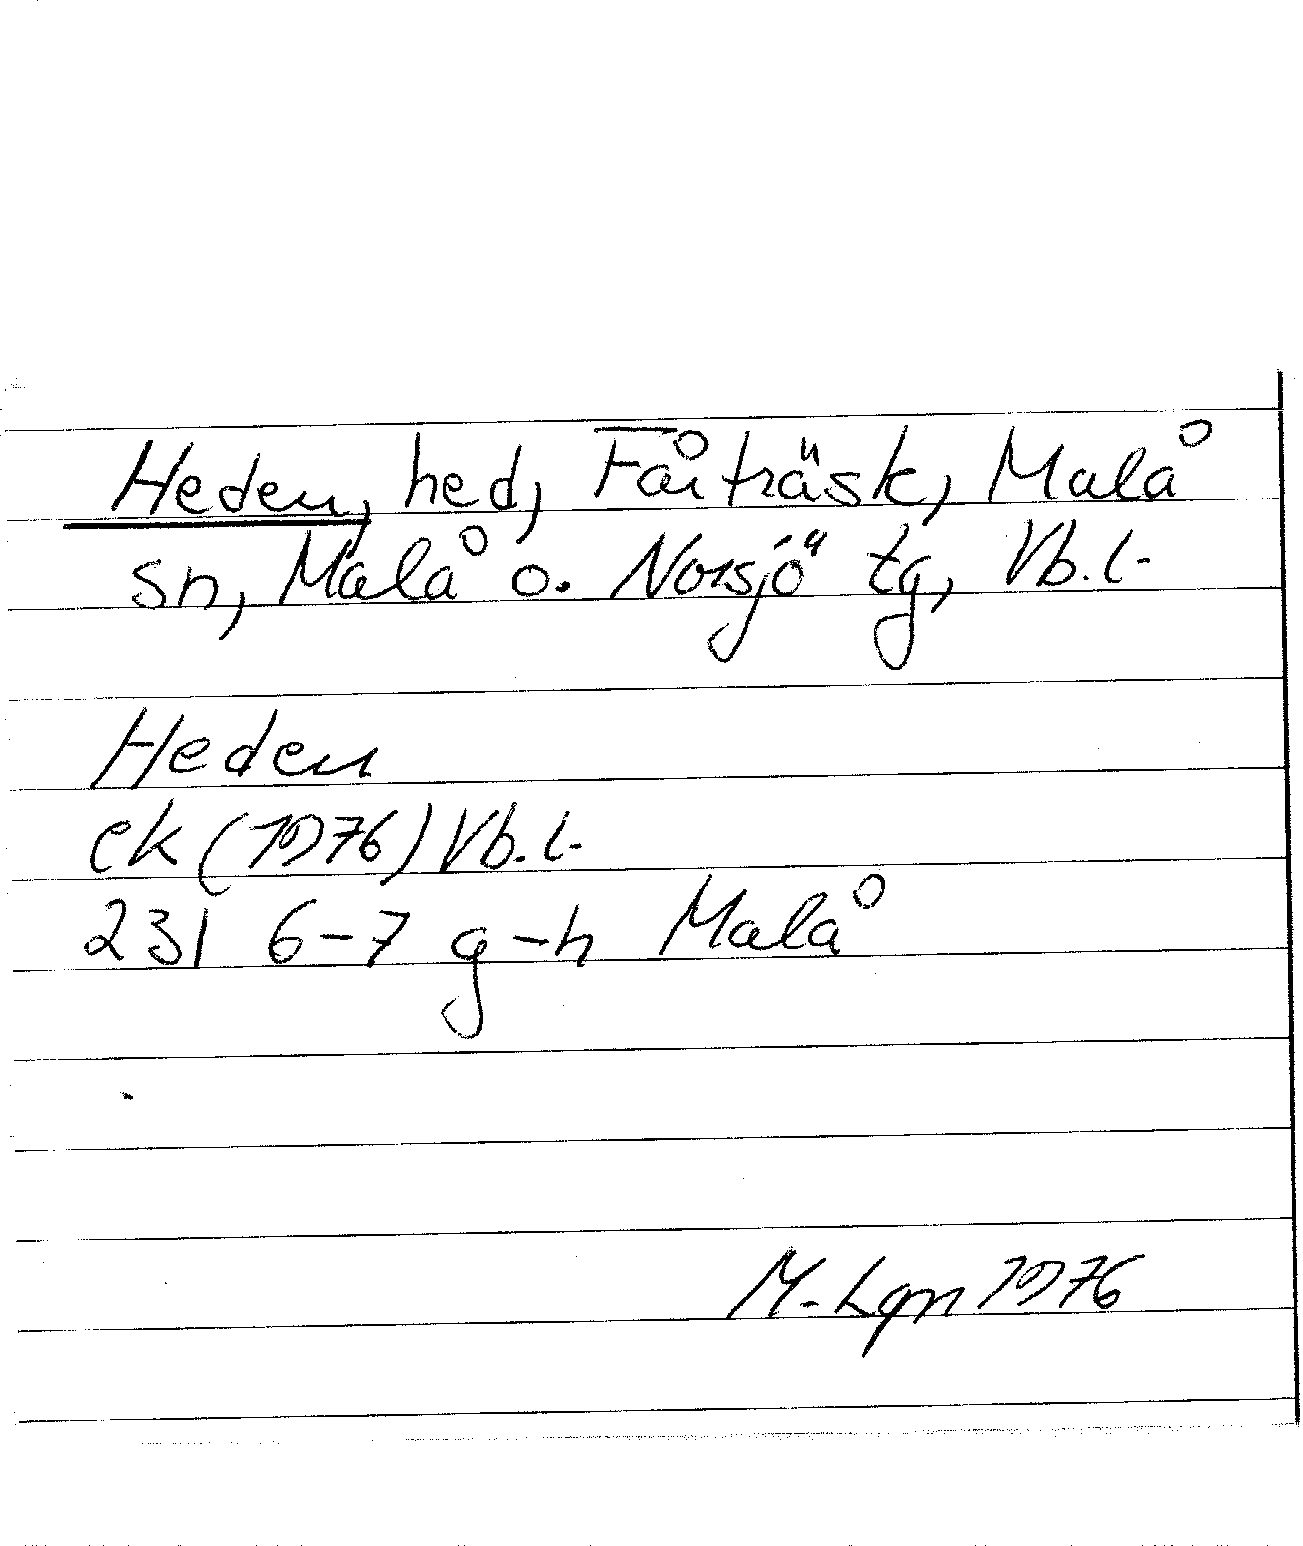 Heden, hed, Fårträsk, Malå
sn, Malå o. Norsjö tg, Vb.l.
Heden
ek (1976) Vb.l.
231 6-7 g-h Malå
M. Lgn 1976